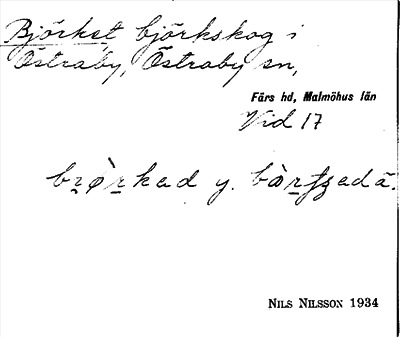 Björket björkskog i
Östraby, Östraby sn,
Färs hd, Malmöhus län
Vid 17
y.
NILS NILSSON 1934